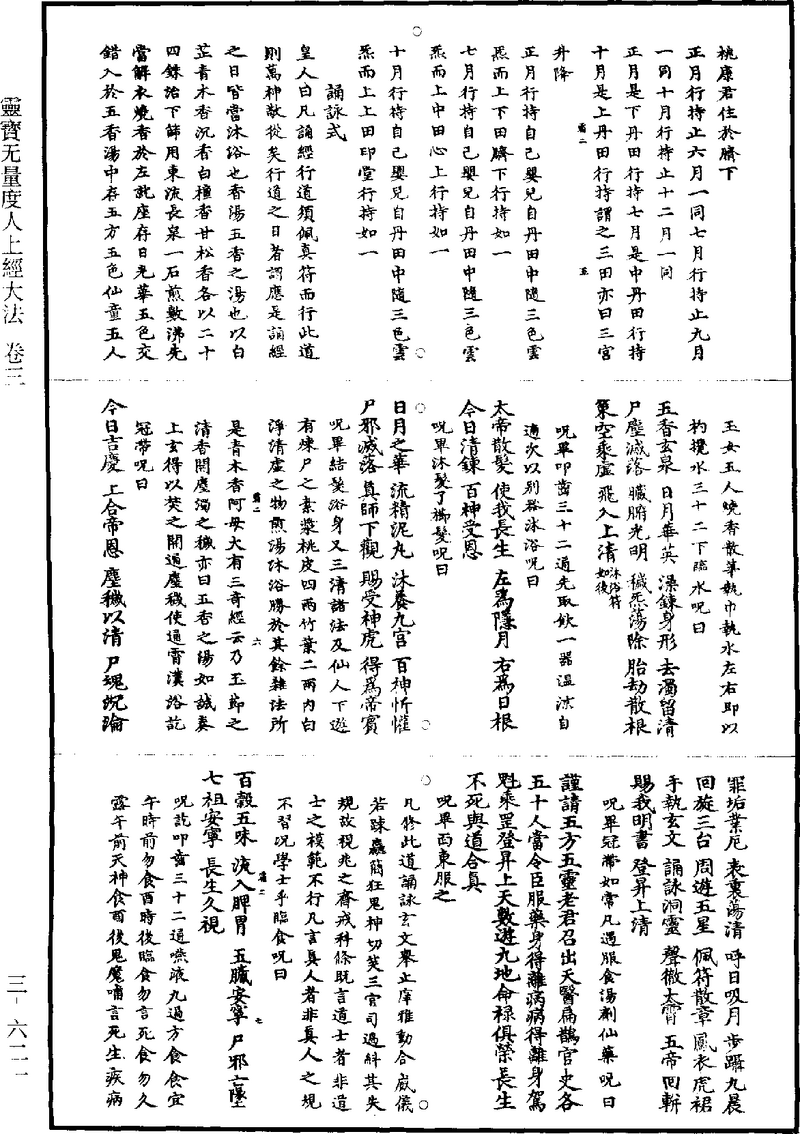 桃康君住於臍下
正月行持止六月一同七月行持止九月
一同十月行持止十二月一同
正月是下丹田行持七月是中丹田行持
十月是上丹田行持謂之三田亦曰三宮
升降
正月行持自己嬰兒自丹田中隨三色雲
炁而上下田臍下行持如一
七月行持自己嬰兒自丹田中隨三色雲
炁而上中田心上行持如一
十月行持自己嬰兒自丹田中隨三色雲
炁而上上田印堂行持如一
誦詠式
皇人曰凡誦經行道須佩真符而行此道
則萬神敬從矣行道之日者謂應是誦經
之日皆當沐浴也香湯五香之湯也以白
芷青木香沉香白檀香甘松香各以二十
四銖治下篩用東流長泉一石煎數沸先
當解衣燒香於左訖座存日光華五色交
錯入於五香湯中存五方五色仙童五人
玉女五人燒香散華執巾執水左右即以
杓攪水三十二下臨水呪曰
五香玄泉 日月華英 澡鍊身形 去濁留清
尸塵滅落 臟腑光明 穢炁蕩除 胎劫散根
策空乘虛 飛入上清 沐浴符如後
呪畢叩齒三十二通先取飲一器溫涼自
適次以別器沐浴呪曰
太帝散髮 使我長生 左為隱月 右為日根
今日清鍊 百神受恩
呪畢沐髮了櫛髮呪曰
日月之華 流精泥丸 沐養九宮 百神忻懽
尸邪滅落 真師下觀 賜受神虎 得為帝賓
呪畢結髮浴身又三清諸法及仙人下遊
有煉尸之素漿桃皮四兩竹葉二兩內白
淨清虛之物煎湯沐浴勝於其餘雜法所
是青木香阿母大有三奇經云乃玉節之
清香開塵濁之穢亦曰五香之湯如誠奏
上玄得以焚之開通塵穢使通霄漢浴訖
冠帶呪曰
今日吉慶 上合帝恩 塵穢以清 尸魄沉淪
罪垢業厄 表裏蕩清 呼日吸月 步躡九晨
回旋三台 周遊五星 佩符散章 鳳衣虎裙
手執玄文 誦詠洞靈 聲徹太霄 五帝回軿
賜我明書 登昇上清
呪畢冠帶如常凡遇服食湯劑仙藥呪曰
謹請五方五靈老君召出天醫扁鵲官吏各
五十人當令臣服藥身得離病病得離身駕
魁乘罡登昇上天數遊九地命祿俱榮長生
不死與道合真
呪畢面東服之
凡修此道誦詠玄文舉止庠雅動合威儀
若踈麤簡狂鬼神切笑三官司過糾其失
規故稅兆之齋戒科條既言道士者非道
士之模範不行凡言真人者非真人之規
不習況學士乎臨食呪曰
百穀五味 流入脾胃 五臟安寧 尸邪亡墜
七祖安寧 長生久視
呪訖叩齒三十二通嚥液九過方食食宜
午時前勿食酉時後臨食勿言死食勿久
露午前天神食酉後鬼魔嗜言死生疾病
靈寶无量度人上經大法 卷三
三-六二一